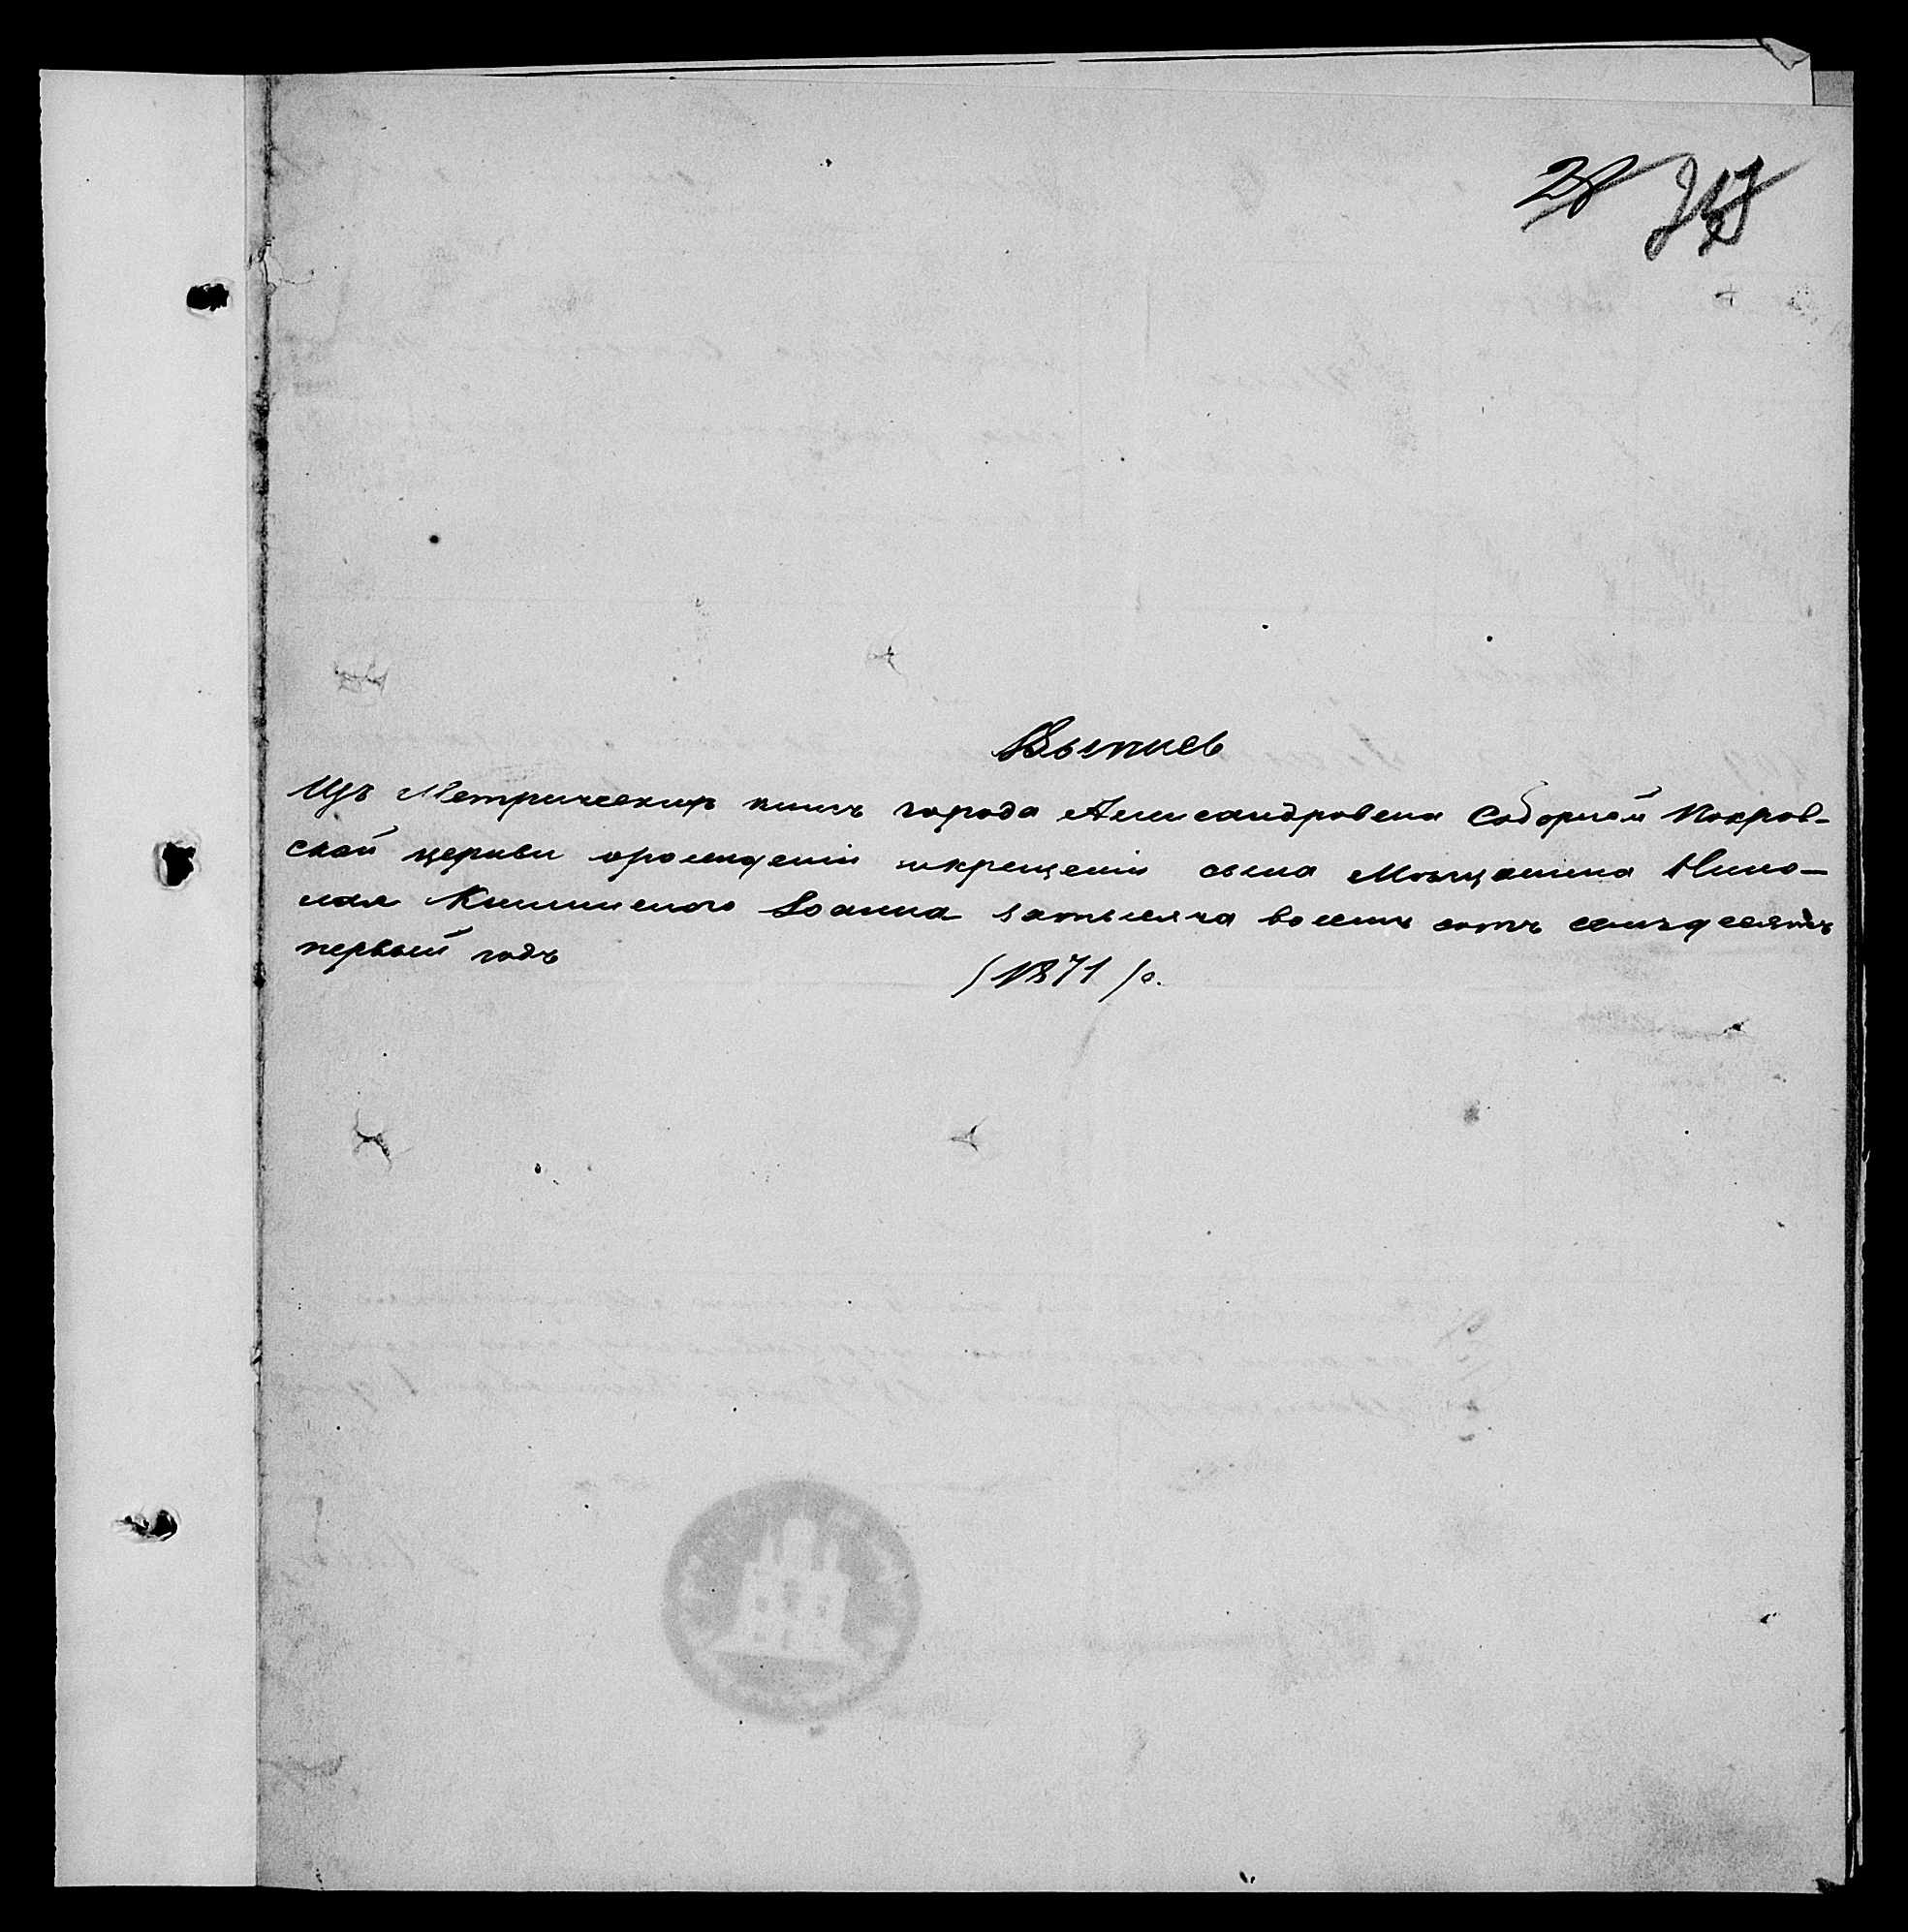 28
Выпись
Изъ Метрическихъ книгъ города Александровска Соборной Покров-
ской церкви орожденіи икрещеніи сына Мѣщанина Нико-
лая Іоанна затысяча восемь сотъ семьдесятъ
первый годъ
(1871) г.